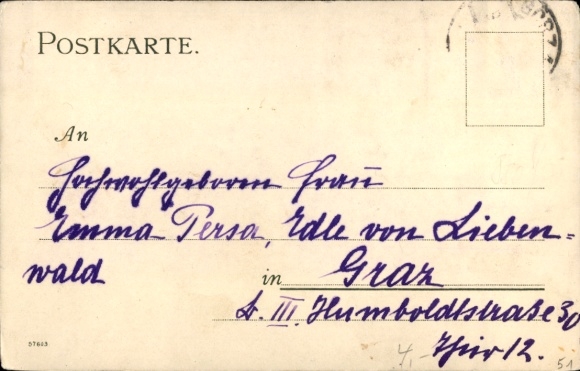 POSTKARTE.
An
Hochwohlgeboren Frau
Emma Persa, Edle von Lieben=
wald
in Graz
b. III. Humboldtstraße 30
Thür 12.
57625
4,-
51